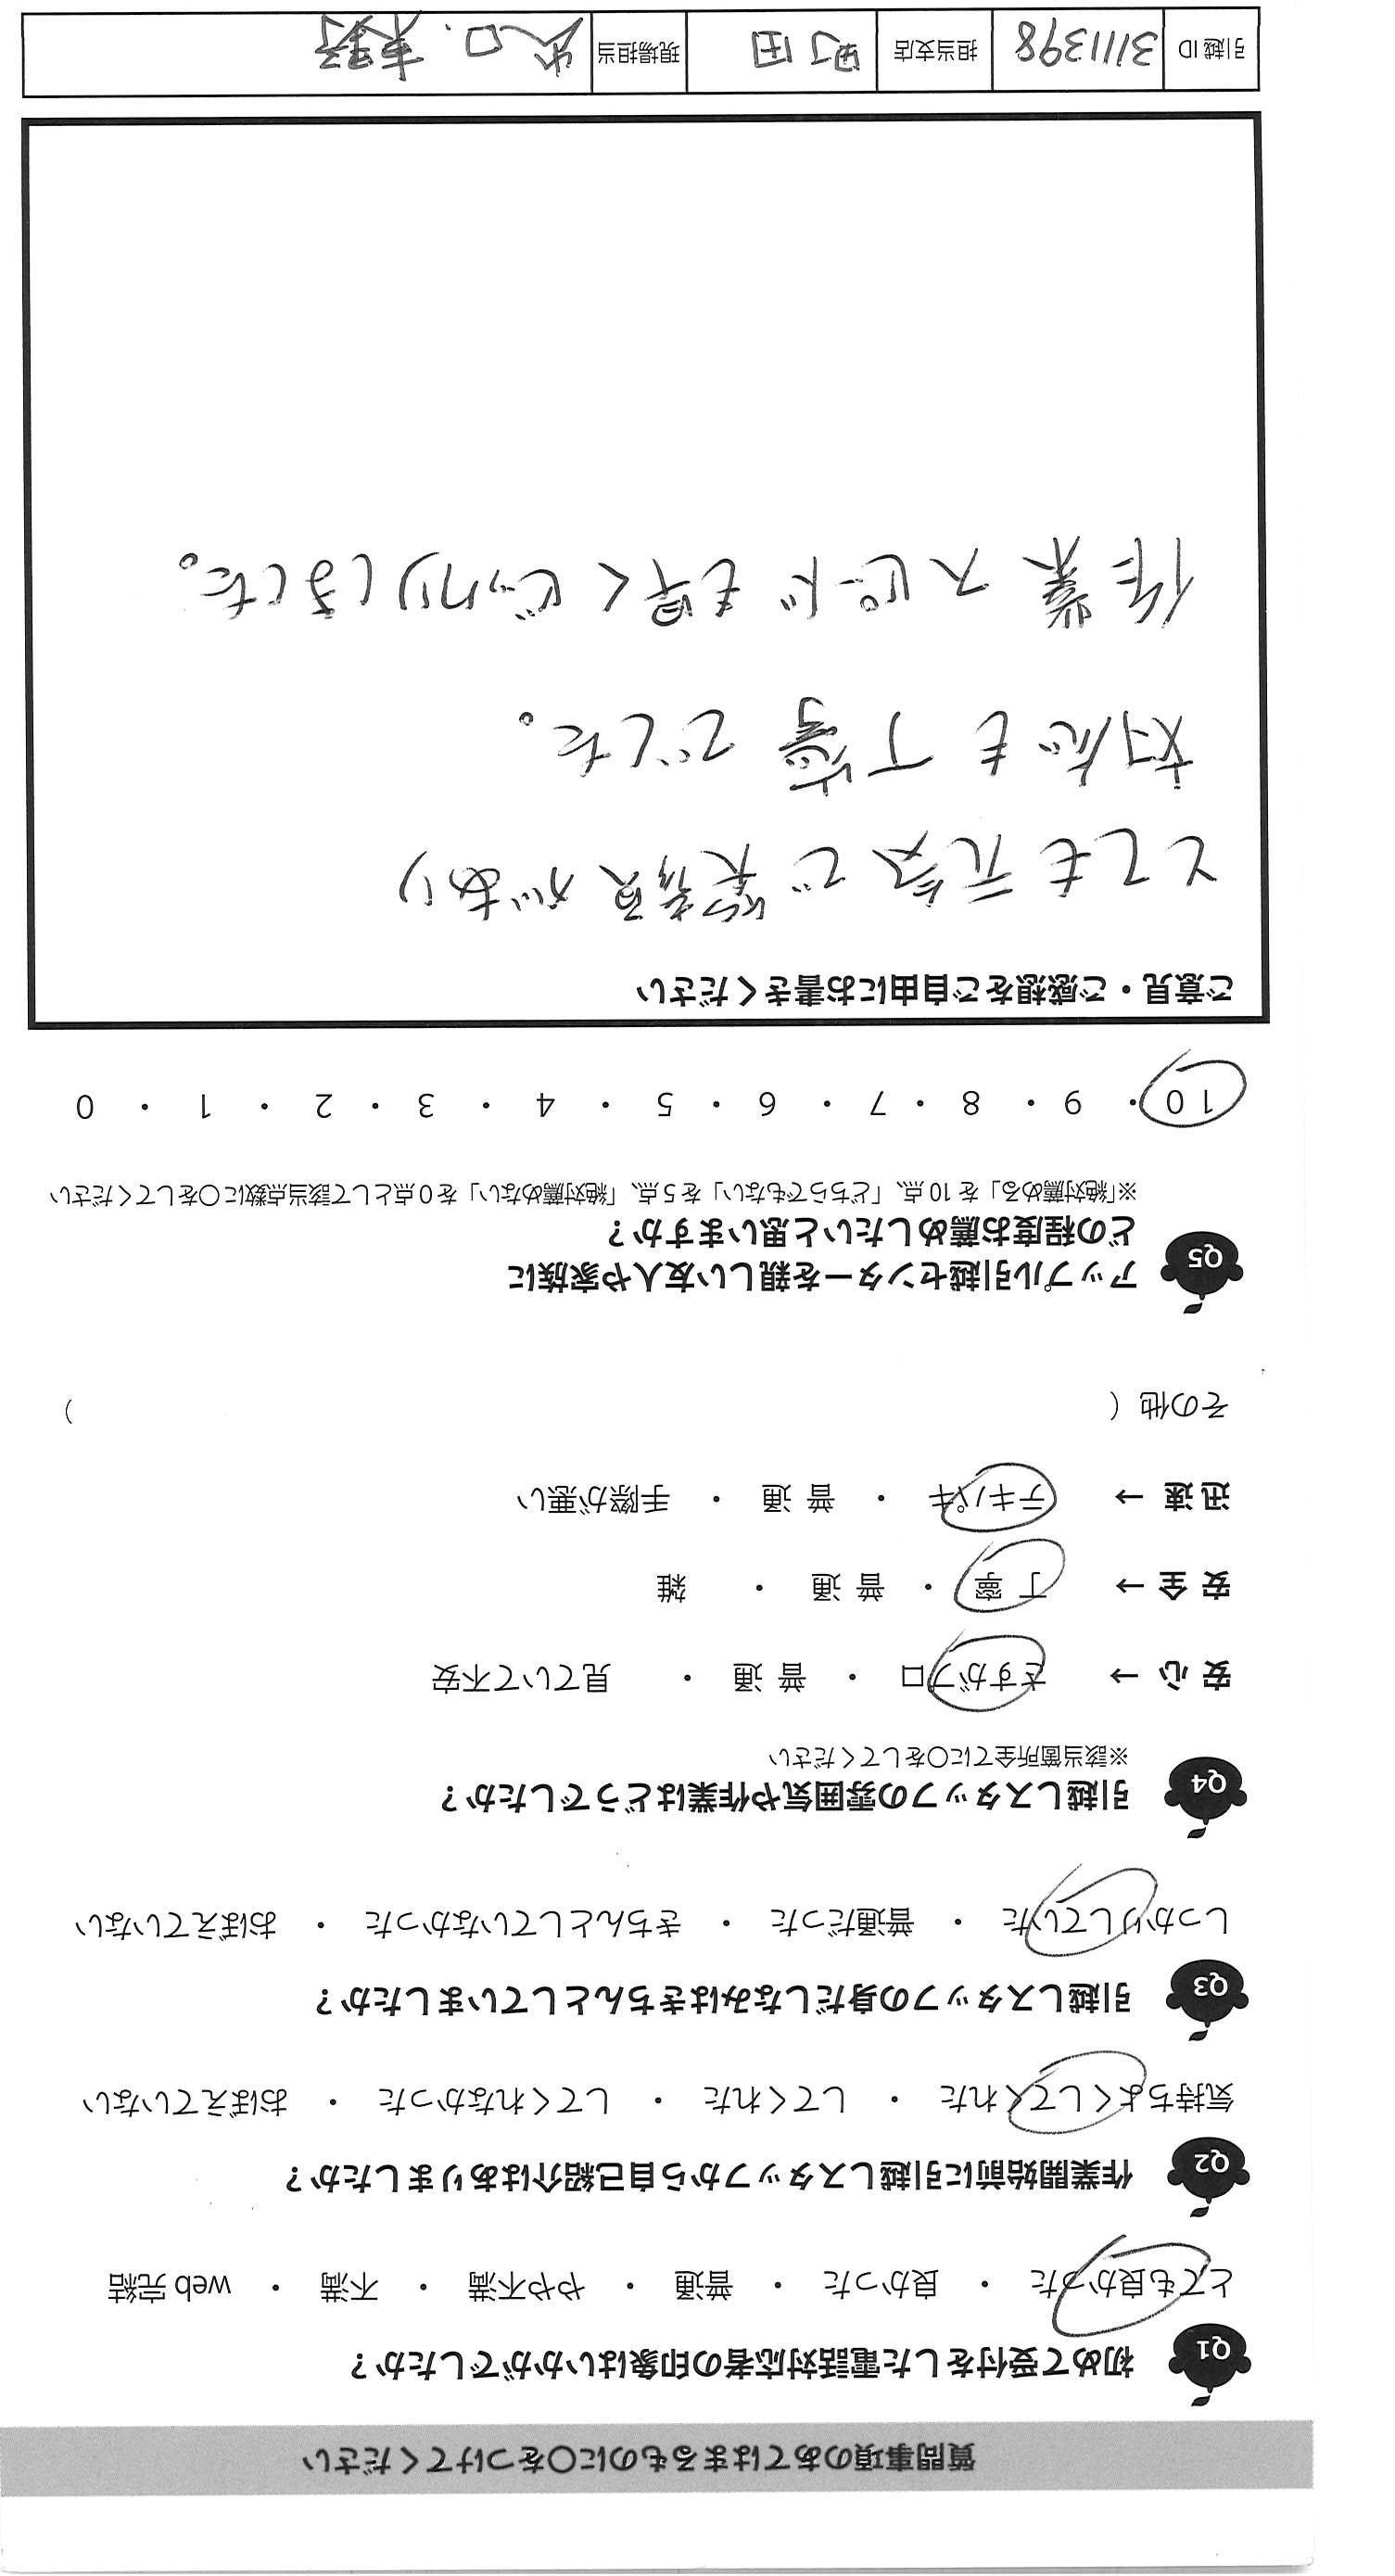 質問事項のあてはまるものに○をつけてください
Q1 初めて受付をした電話対応者の印象はいかがでしたか？
とても良かった ・ 良かった ・ 普通 ・ やや不満 ・ 不満 ・ web 完結
Q2 作業開始前に引越しスタッフから自己紹介はありましたか？
気持ちよくしてくれた ・ してくれた ・ してくれなかった ・ おぼえていない
Q3 引越しスタッフの身だしなみはきちんとしていましたか？
しっかりしていた ・ 普通だった ・ きちんとしていなかった ・ おぼえていない
Q4 引越しスタッフの雰囲気や作業はどうでしたか？
※該当箇所全てに○をしてください
安 心 → さすがプロ ・ 普 通 ・ 見ていて不安
安 全 → 丁 寧 ・ 普 通 ・ 雑
迅 速 → テキパキ ・ 普 通 ・ 手際が悪い
その他（ ）
Q5 アップル引越センターを親しい友人や家族に
どの程度お薦めしたいと思いますか？
※「絶対薦める」を 10 点、「どちらでもない」を 5 点、「絶対薦めない」を 0 点として該当点数に○をしてください
10 ・ 9 ・ 8 ・ 7 ・ 6 ・ 5 ・ 4 ・ 3 ・ 2 ・ 1 ・ 0
ご意見・ご感想をご自由にお書きください
とても元気で笑顔があり
対応も丁寧でした。
作業スピードも早くビックリしました。
引越 ID 3111398 担当支店 町田 現場担当